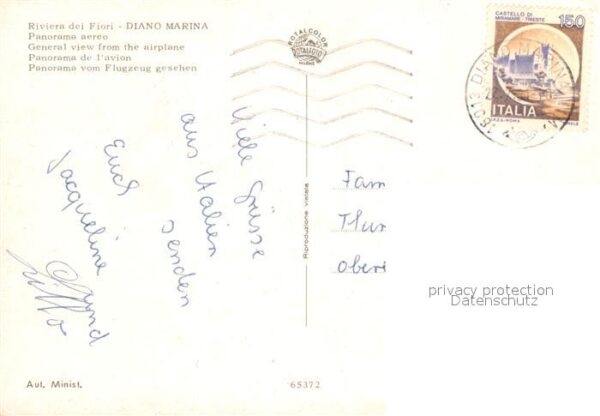 Riviera dei Fiori - DIANO MARINA
Panorama aereo
General view from the airplane
Panorama de l'avion
Panorama vom Flugzeug gesehen
ROTALCOLOR
ROTALFOTO
MILANO
CASTELLO DI
MIRAMARE - TRIESTE
150
ITALIA
18013 DIANO MARINA
Viele Grüsse
aus Italien
senden
Euch
Jacqueline
und
Fam
Thur
Oberi
Riproduzione vietata
privacy protection
Datenschutz
Aut. Minist.
65372